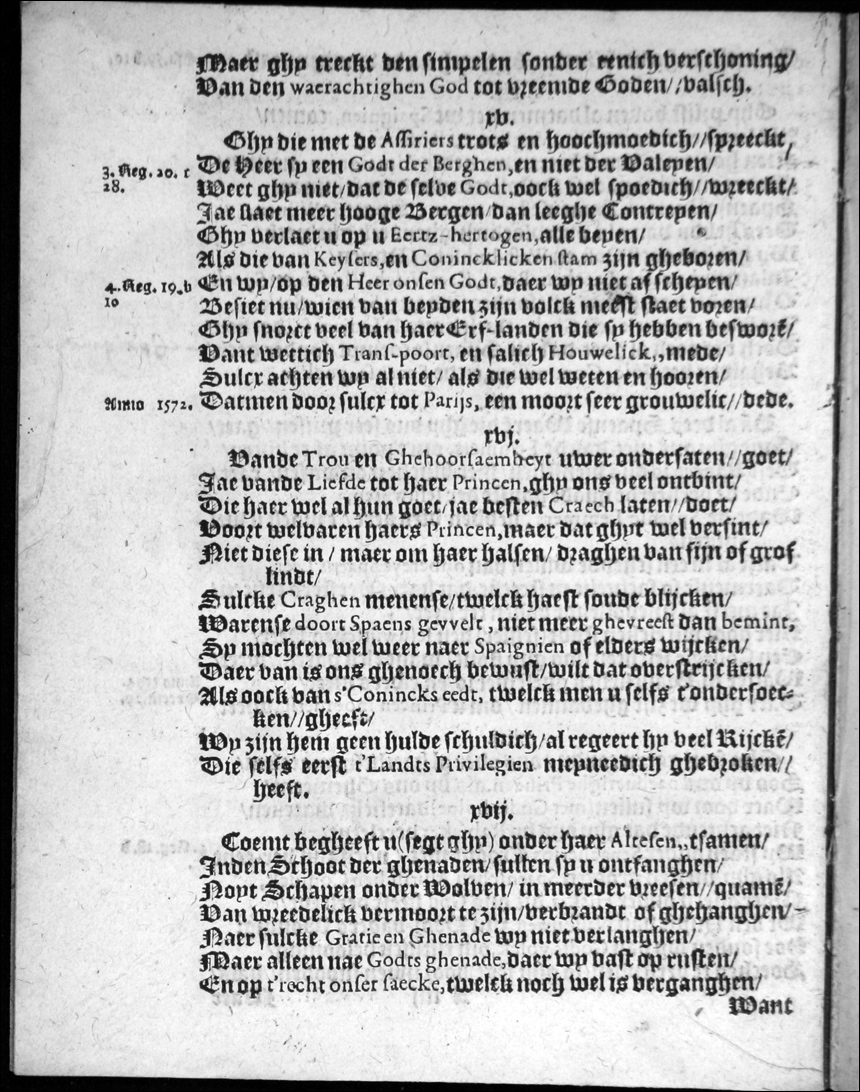 Maer ghy treckt den simpelen sonder eenich verschoning/
Van den waerachtighen God tot vreemde Goden//valsch.
xv.
Ghy die met de Assiriers trots en hoochmoedich//spreeckt,
3. Reg. 20. c De Heer sy een Godt der Berghen, en niet der Valeyen/
28. Weet ghy niet/dat de selve Godt, oock wel spoedich//wreeckt/
Jae slaet meer hooge Bergen/dan leeghe Contreyen/
Ghy verlaet u op u Eertz-hertogen, alle beyen/
Als die van Keysers, en Conincklicken stam zijn gheboren/
4. Reg. 19. b En wy/op den Heer onsen Godt, daer wy niet af scheyen/
10 Besiet nu/wien van beyden zijn volck meest staet voren/
Ghy snorct veel van haer Erf-landen die sy hebben besworē/
Vant wettich Trans-poort, en salich Houwelick,,mede/
Sulcx achten wy al niet/ als die wel weten en hooren/
Anno 1572. Datmen door sulcx tot Parijs, een moort seer grouwelic//dede.
xvj.
Vande Trou en Ghehoorsaemheyt uwer ondersaten//goet/
Jae vande Liefde tot haer Princen, ghy ons veel ontbint/
Die haer wel al hun goet/jae besten Craech laten//doet/
Voort welvaren haers Princen, maer dat ghyt wel versint/
Niet diese in / maer om haer halsen/ draghen van fijn of grof
lindt/
Sulcke Craghen menense/twelck haest soude blijcken/
Warense doort Spaens gevvelt, niet meer ghevreest dan bemint,
Sy mochten wel weer naer Spaignien of elders wijcken/
Daer van is ons ghenoech bewust/wilt dat overstrijcken/
Als oock van s'Conincks eedt, twelck men u selfs t'ondersoec-
ken//gheeft/
Wy zijn hem geen hulde schuldich/al regeert hy veel Rijckē/
Die selfs eerst t'Landts Privilegien meyneedich ghebroken//
heeft.
xvij.
Coemt begheeft u (segt ghy) onder haer Altesen,,tsamen/
Inden Schoot der ghenaden/sullen sy u ontfanghen/
Noyt Schapen onder Wolven/ in meerder vreesen//quamē/
Van wreedelick vermoort te zijn/verbrandt of ghehanghen/
Naer sulcke Gratie en Ghenade wy niet verlanghen/
Maer alleen nae Godts ghenade, daer wy vast op rusten/
En op t'recht onser saecke, twelck noch wel is verganghen/
Want